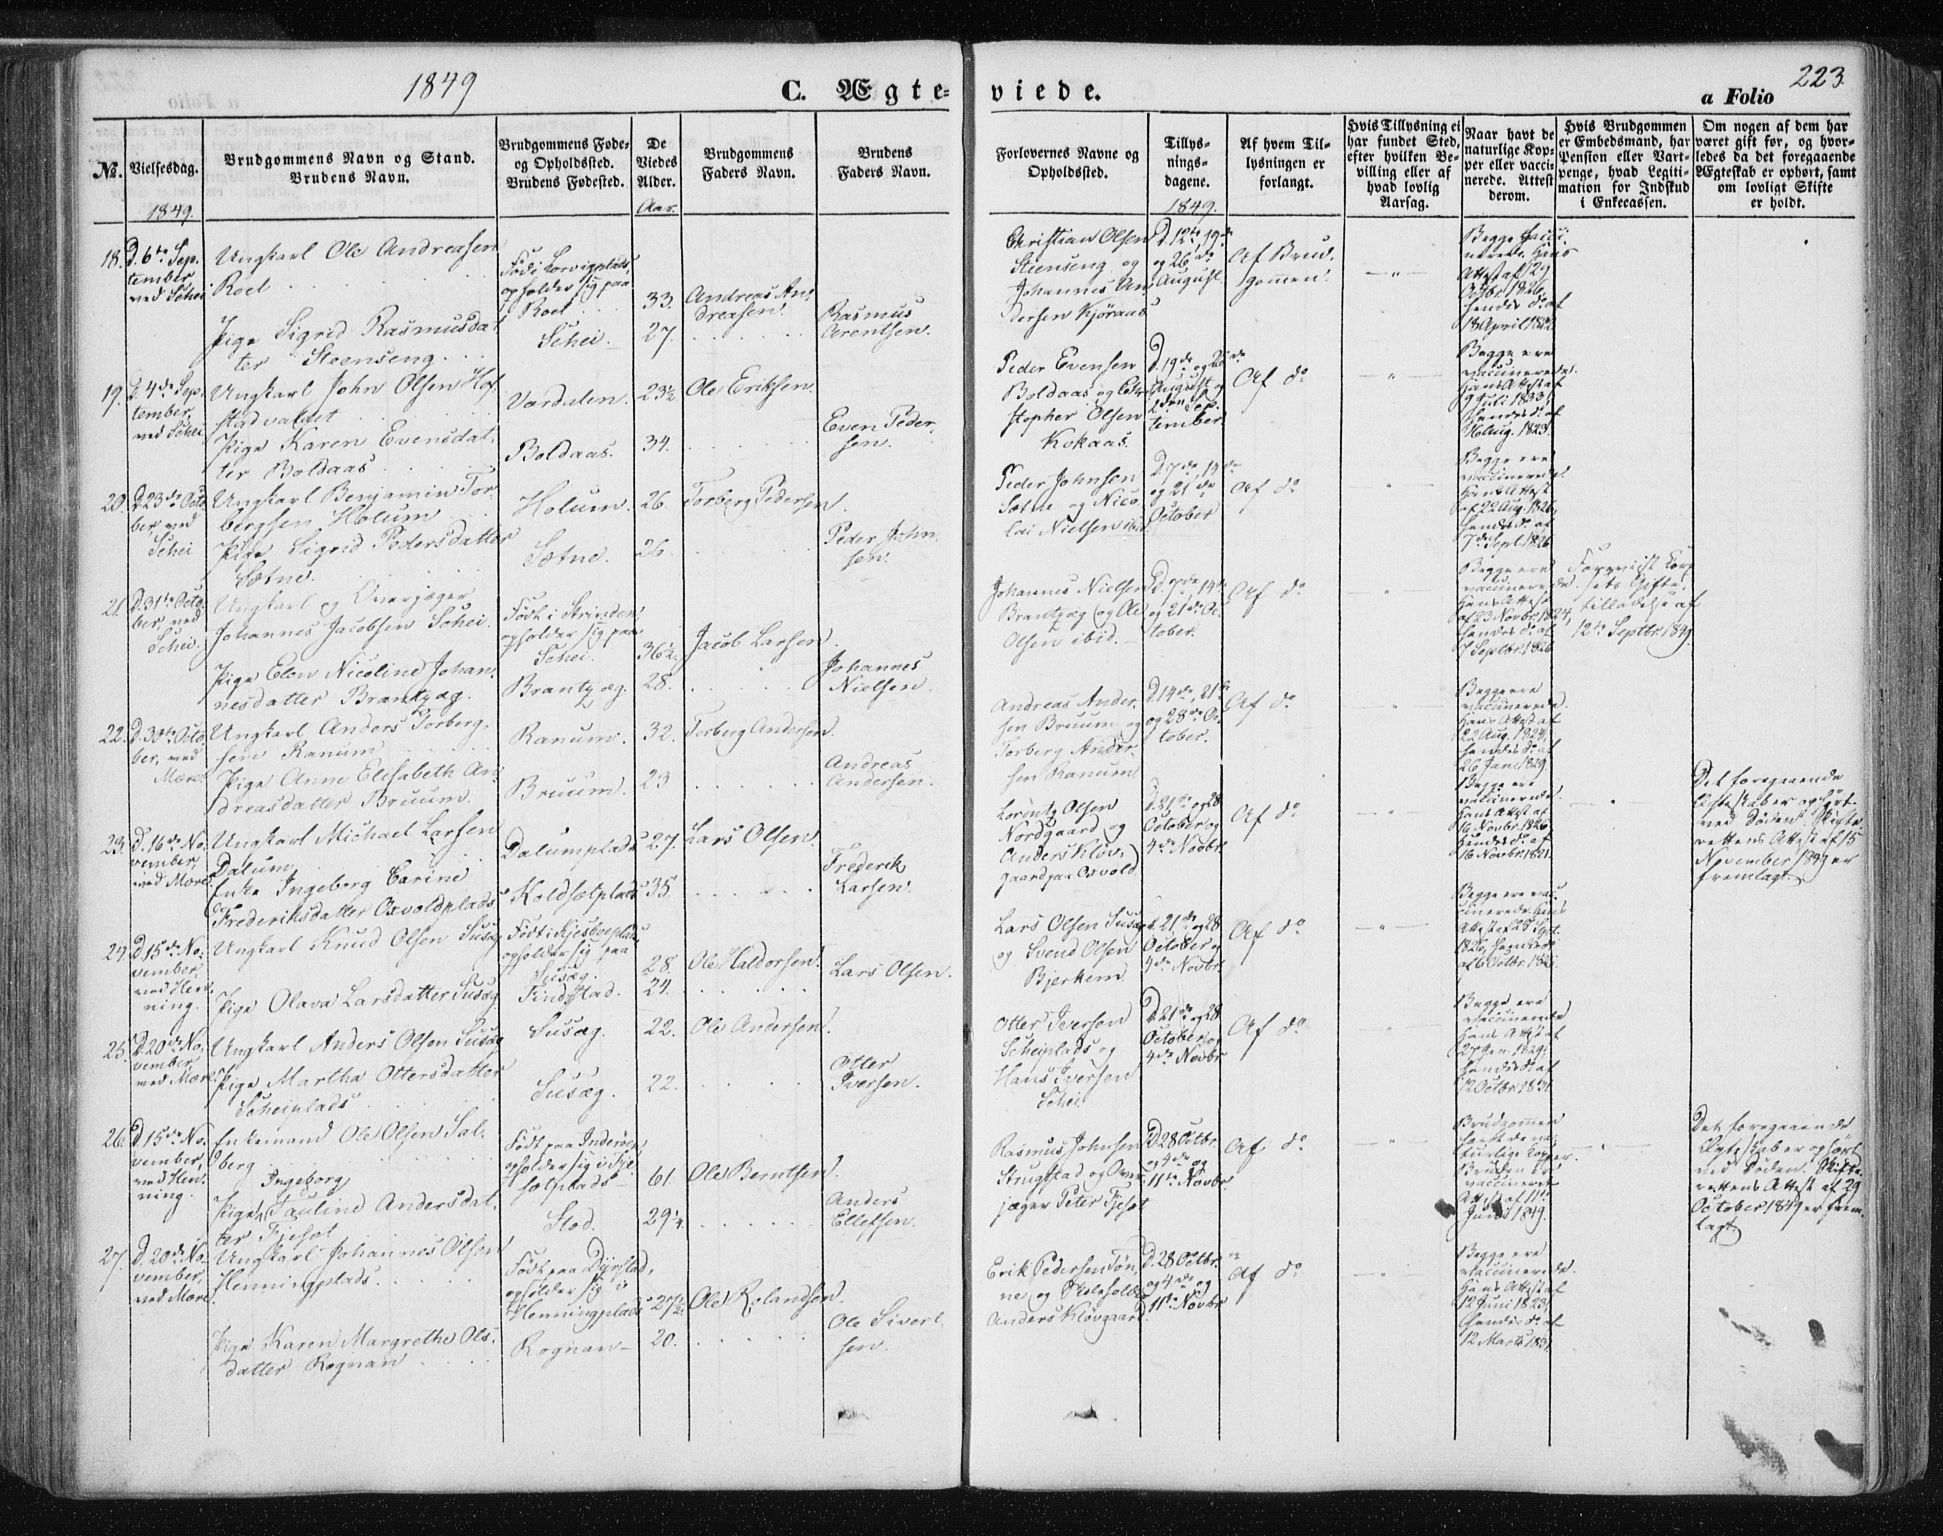 1849
C. Ægte-
viede.
223.
a Folio
No.
Vielsesdag.
Brudgommens Navn og Stand.
Brudens Navn.
Brudgommens Føde-
og Opholdssted.
Brudens Fødested.
De
Viedes
Alder.
Brudgommens
Faders Navn.
Brudens
Faders Navn.
Forlovernes Navne og
Opholdssted.
Tillys-
nings-
dagene.
Af hvem Til-
lysningen er
forlangt.
Hvis Tillysning ei
har fundet Sted,
efter hvilken Be-
villing eller af
hvad lovlig
Aarsag.
Naar havt de
naturlige Kop-
per eller vacci-
nerede. Attest
derom.
Hvis Brudgommen
er Embedsmand, har
Pension eller Vart-
penge, hvad Legiti-
mation for Indskud
i Enkecassen.
Om nogen af dem har
været gift før, og hvor-
ledes da det foregaaende
Ægteskab er ophørt, samt
om lovligt Skifte
er holdt.
1849.
Aar.
1849.
18.
D. 6te Sep-
tember,
ved Schei
Ungkarl Ole Andreasen
Roel
Pige Sigrid Rasmusdat-
ter Steenseng
opholder sig paa
Roel
Schei
33.
27.
Andreas An-
dreasen
Rasmus
Arentsen.
Christian Olsen
Steenseng og
Johannes An-
dersen Kjøraas
D. 12te, 19de
og 26de
August
Af Brud-
gommen
Begge vacci-
nerede. Hans
Attest af 29
Octbr. 1826.
hendes do af
19.
D. 4de Sep-
tember,
ved Schei
Ungkarl John Olsen Hof-
stadvaldet
Pige Karen Evensdat-
ter Boldaas
Værdalen.
Boldaas.
23½
34.
Ole Eriksen
Even Peder-
sen.
Peder Evensen
Boldaas og Chri-
stopher Olsen
Kokaas.
D. 19de og 26de
August og
2den Sep-
tember.
Af do
Begge ere
vaccinerede.
Hans Attest af
9 Juli 1833,
hendes do af
20.
D. 23de Octo-
ber, ved
Schei
Ungkarl Benjamin Tor-
bergsen Holum
Pige Sigrid Pedersdatter
Sætne.
Holum.
Sætne.
26.
26.
Torberg Pedersen.
Peder John-
sen.
Peder Johnsen
Sætne og Nico-
lai Nielsen ibid.
D. 7de, 14de
og 21de
October
Af do
Begge ere
vaccinerede.
Hans Attest
af 22 Aug. 1826,
hendes do af
7de Sept. 1826
21.
D. 31te Octo-
ber, ved
Schei.
Ungkarl og Overjæger
Johannes Jacobsen Schei.
Pige Elen Nicoline Johan-
nesdatter Brantzæg.
Født i Strinden,
opholder sig paa
Schei.
Brantzæg.
36½
28.
Jacob Larsen
Johannes
Nielsen.
Johannes Nielsen
Brantzæg og Ole
Olsen ibid.
D. 7de, 14de
og 21de Oc-
tober.
Af do
Begge ere
vaccinerede.
Hans Attest
af 23 Novbr. 1824,
hendes do af
7 Septbr. 1826
Forevist Corp-
sets Gifte-
tilladelse af
12te Septbr. 1849.
22.
D. 30te Octo-
ber, ved
Mære
Ungkarl Anders Torberg-
sen Ranum
Pige Anne Elisabeth An-
dreasdatter Bruum.
Ranum.
Bruum.
32.
23
Torberg Andersen.
Andreas
Andersen.
Andreas Ander-
sen Bruum og
Torberg Ander-
sen Ranum
D. 14de, 21de
og 28de Oc-
tober.
Af do
Begge ere
vaccinerede.
Hans Attest af
22 Aug. 1824,
hendes do af
26 Jan. 1829
23.
D. 16de No-
vember
ved Mære
Ungkarl Michael Larsen
Dalum
Enke Ingeborg Carine
Frederiksdatter Oxvoldplads
Dalumplads
Koldsætplads
27.
35.
Lars Olsen.
Frederik
Larsen.
Lorentz Olsen
Nordgaard og
Anders Kløv-
gaard paa Oxvold
D. 21de og 28
October og
4de Novbr.
Af do
Begge ere
vaccinerede.
Hans Attest af
16 Novbr. 1826
hendes do af
16 Novbr. 1821.
Det foregaaende
Ægteskab er ophørt
ved Døden. Skifte-
rettens Attest af 15
November 1849 er
fremlagt.
24.
D. 15de No-
vember
ved Hen-
ning.
Ungkarl Knud Olsen Susæg
Pige Olava Larsdatter Susæg
opholder sig paa
Susæg.
Findstad.
28.
24.
Ole Haldorsen.
Lars Olsen.
Lars Olsen Susæg
og Svend Olsen
Bjerkem
d. 21de og 28
October og
4de Novbr.
Af do
Begge ere vac-
cinerede. Hans
Attest af 25 Sept.
1826, hendes do
af 6 Octbr. 1825
25.
D. 20de No-
vember,
ved Mære
Ungkarl Anders Olsen Susæg
Pige Martha Ottersdatter
Scheiplads
Susæg.
Susæg.
22.
22.
Ole Andersen.
Otter
Iversen.
Otter Iversen
Scheiplads og
Hans Iversen
Schei
D. 21de og 28
October og
4de Novbr
Af do
Begge ere
vaccinerede
Hans Attest af
hendes do af
12 Octbr. 1831.
26.
D. 15de No-
vember,
ved Hen-
ning.
Enkemand Ole Olsen Sal-
berg
Ingeborg
Pige Pauline Andersdat-
ter Fjesøt
Født paa Inderøen,
opholder sig i Fje-
søtplads
Stod.
61.
29¼
Ole Berntsen.
Anders
Ellefsen.
Rasmus Johnsen
Strugstad og Over-
jæger Peter Fjesøt
D. 28 Octbr.
og 4de og
11te Novbr.
Af do
Brudgommen
havt de na-
turlige Kopper.
Bruden er
vaccineret
Attest af 11te
Juni 1849.
Det foregaaende
Ægteskab er ophørt
ved Døden. Skifte-
rettens Attest af 29
October 1849 er frem-
lagt
27.
D. 20de No-
vember,
ved Mære
Ungkarl Johannes Olsen
Henningplads.
Pige Karen Margrethe Ols-
datter Rognan
opholder sig i
Henningplads
Rognan
27½
20.
Ole Rolandsen.
Ole Sivert-
sen.
Erik Pedersen Tøn-
ne og Skoleholder
Anders Kløvgaard
D. 28 Octbr.
og 4de og
11te Novbr
Af do
Begge ere
vaccinerede.
Hans Attest af
12 Juni 1823,
hendes do af
12 Marts 1831.